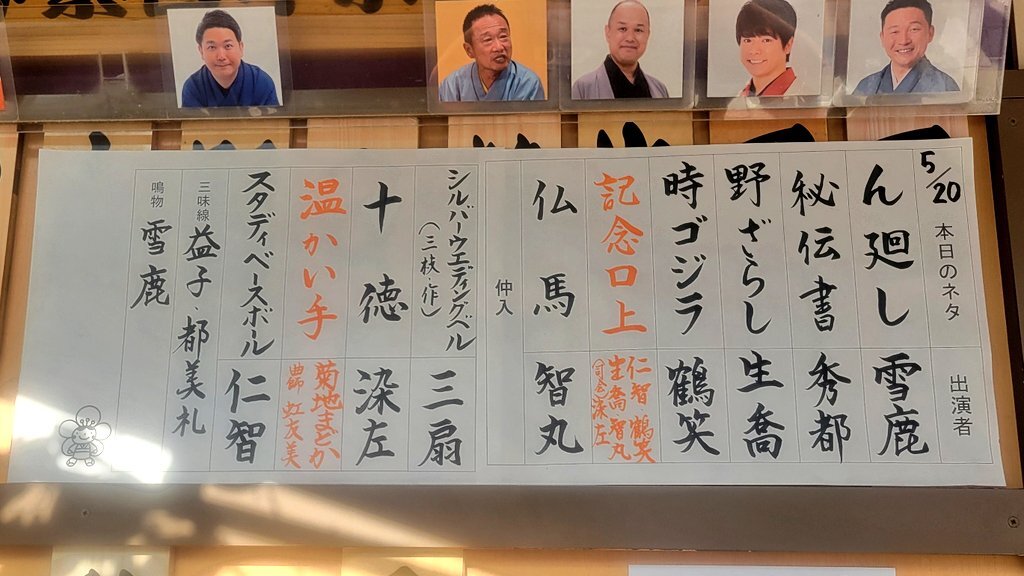 5/20 本日のネタ 出演者
ん廻し 雪鹿
秘伝書 秀都
野ざらし 生喬
時ゴジラ 鶴笑
記念口上 仁智 鶴笑
生喬 智丸
(司会)染左
仏馬 智丸
仲入
シルバーウエディングベル 三扇
(三枝・作)
十徳 染左
温かい手 菊地まどか
曲師 虹友美
スタディベースボール 仁智
三味線 益子・都美札
鳴物 雪鹿